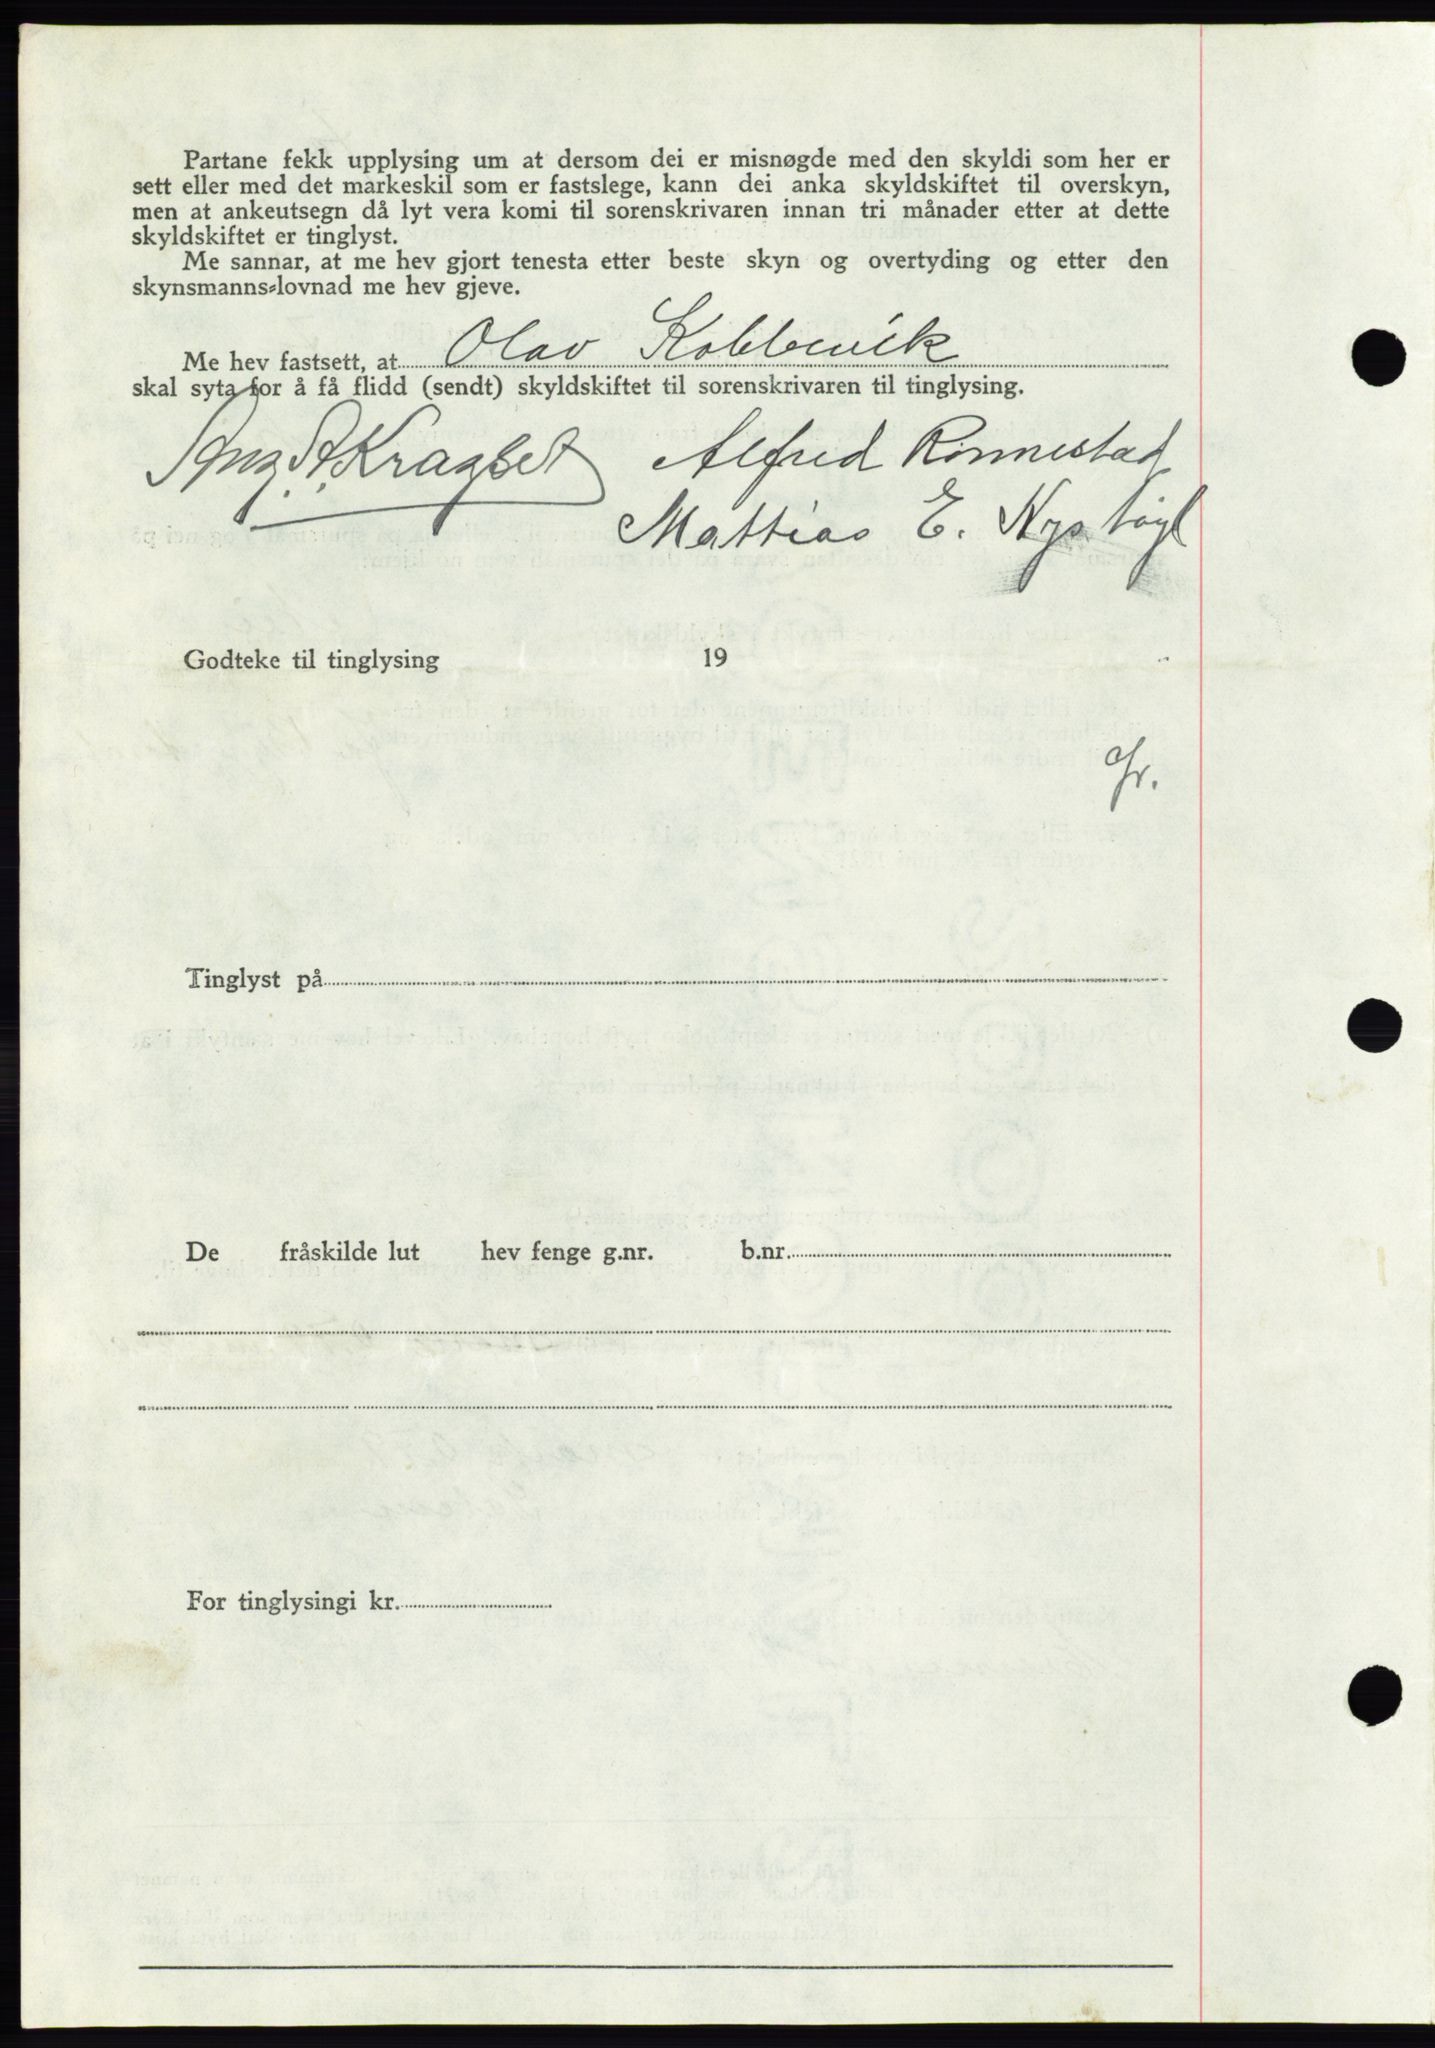 Partane fekk upplysing um at dersom dei er misnøgde med den skyldi som her er
sett eller med det markeskil som er fastslege, kann dei anka skyldskiftet til overskyn,
men at ankeutsegn då lyt vera komi til sorenskrivaren innan tri månader etter at dette
skyldskiftet er tinglyst.
Me sannar, at me hev gjort tenesta etter beste skyn og overtyding og etter den
skynsmanns-lovnad me hev gjeve.
Me hev fastsett, at Olav Kobbevik
skal syta for å få flidd (sendt) skyldskiftet til sorenskrivaren til tinglysing.
Ang. A. Kragset Alfred Rønnestad
Mattias E. Nystøyl
Godteke til tinglysing 19
Gr.
Tinglyst på
De fråskilde lut hev fenge g.nr. b.nr.
For tinglysingi kr.